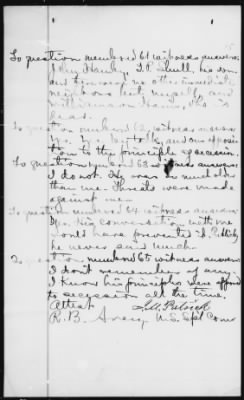 15
To question numbered 61 witness answers:
I. T. Shull, his son
and
neighbors but myself, and
is
dead.
To question numbered 62 witness answers
Yes. and our opposi-
tion to the principle of secession.
To question numbered 63 witness answers
I do not. He was much older
than me. Threats were made
against me.
To question numbered 64 witness answers
Yes. His conversation with me
would have prevented it. Publicly
he never said much.
To question numbered 65 witness answers
I don't remember of any.
I know his principles were opposed
to secession all the time.
Attest
R. B. Avery, U.S. Spcl Comr